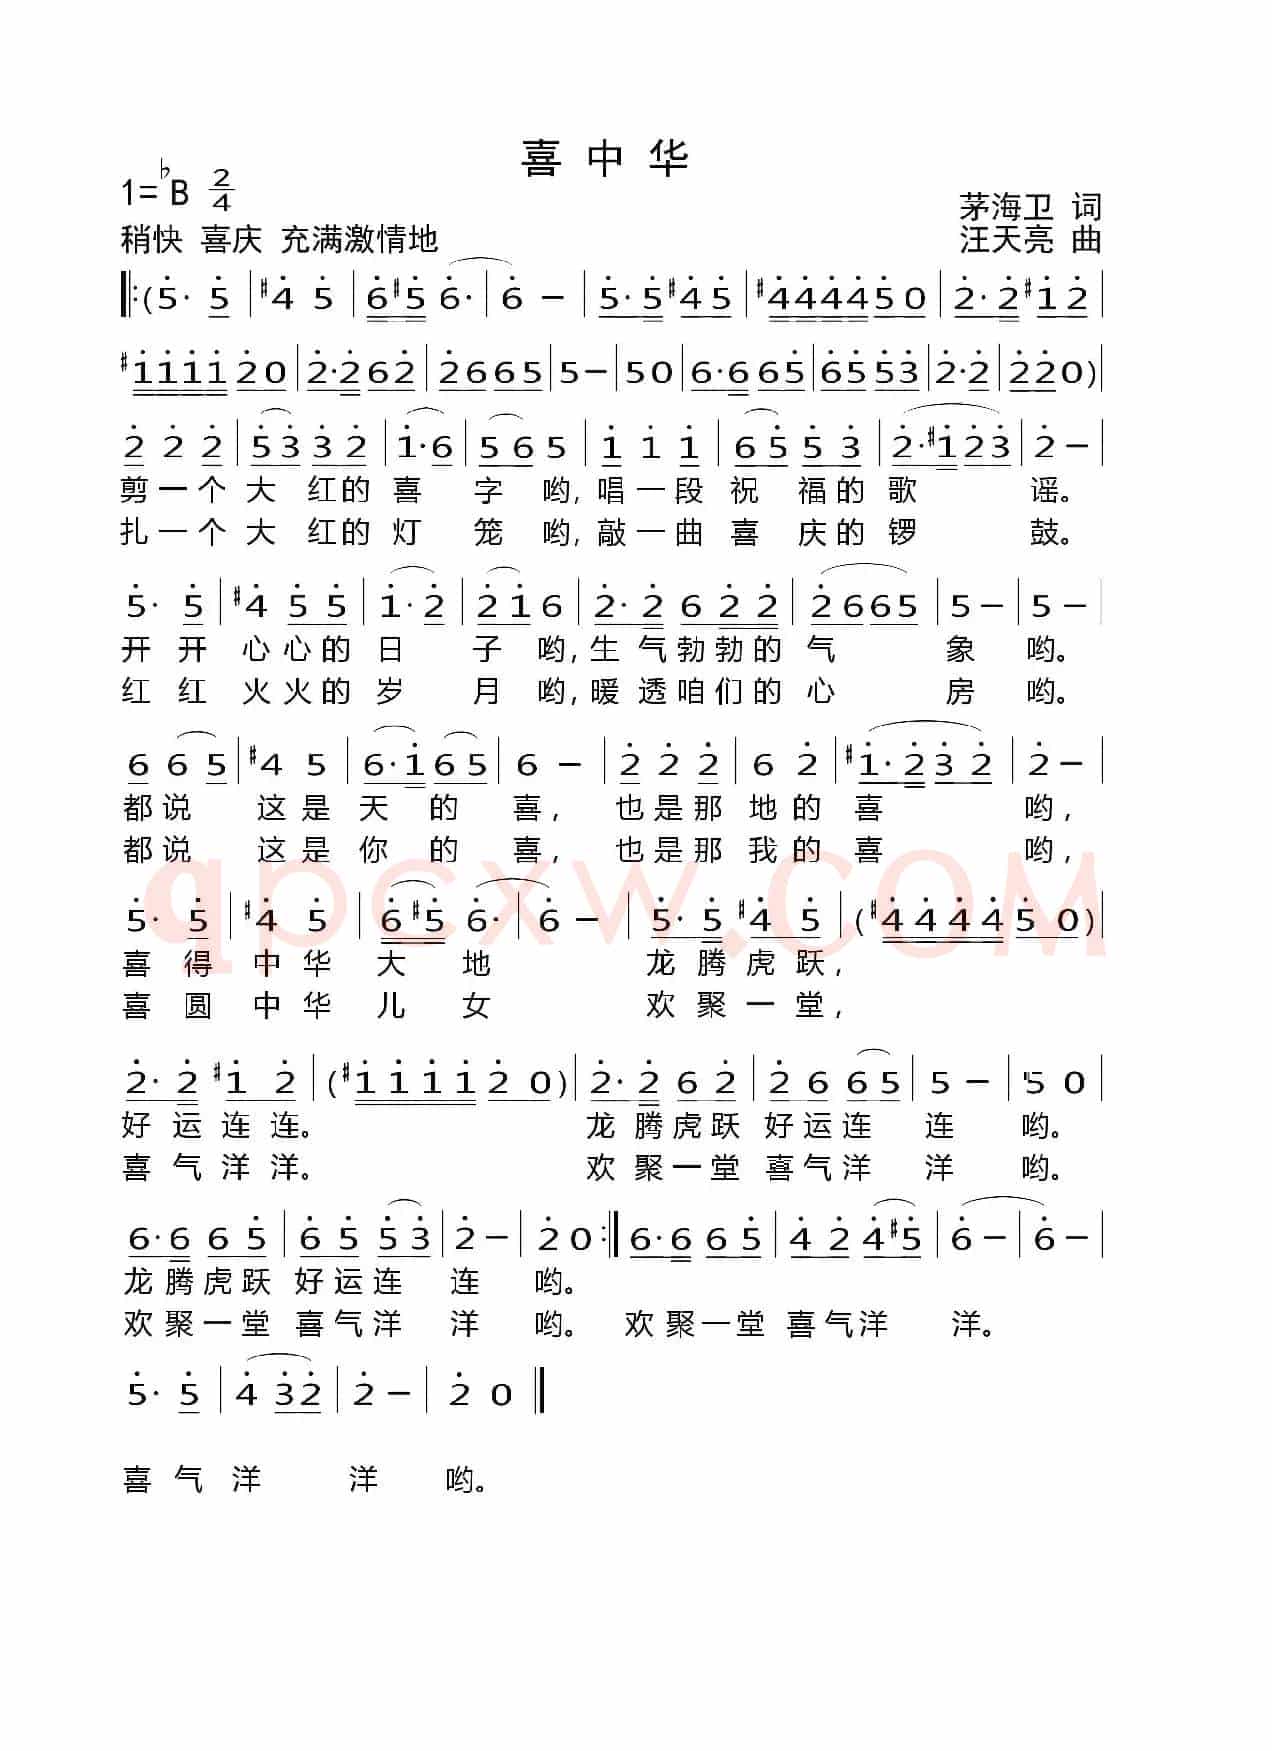 喜中华
1=♭B 2/4
茅海卫 词
稍快 喜庆 充满激情地
汪天亮 曲
‖:(5· 5 | #4 5 | 6 #5 6· | 6 − | 5· 5 #4 5 | #4 4 4 4 5 0 | 2· 2 #1 2 |
#1 1 1 1 2 0 | 2· 2 6 2 | 2 6 6 5 | 5 − | 5 0 | 6· 6 6 5 | 6 5 5 3 | 2· 2 | 2 2 0) |
2 2 2 | 5 3 3 2 | 1· 6 | 5 6 5 | 1 1 1 | 6 5 5 3 | 2· #1 2 3 | 2 − |
剪一个大红的喜字哟,唱一段祝福的歌谣。
扎一个大红的灯笼哟,敲一曲喜庆的锣鼓。
5· 5 | #4 5 5 | 1· 2 | 2 1 6 | 2· 2 6 2 2 | 2 6 6 5 | 5 − | 5 − |
开开心心的日子哟,生气勃勃的气象哟。
红红火火的岁月哟,暖透咱们的心房哟。
6 6 5 | #4 5 | 6· 1 6 5 | 6 − | 2 2 2 | 6 2 | #1· 2 3 2 | 2 − |
都说这是天的喜,也是那地的喜哟,
都说这是你的喜,也是那我的喜哟,
5· 5 | #4 5 | 6 #5 6· | 6 − | 5· 5 #4 5 | (#4 4 4 4 5 0) |
喜得中华大地龙腾虎跃,
喜圆中华儿女欢聚一堂,
2· 2 #1 2 | (#1 1 1 1 2 0) | 2· 2 6 2 | 2 6 6 5 | 5 − | 5 0 |
好运连连。龙腾虎跃好运连连哟。
喜气洋洋。欢聚一堂喜气洋洋哟。
6· 6 6 5 | 6 5 5 3 | 2 − | 2 0 :‖ 6· 6 6 5 | 4 2 4 #5 | 6 − | 6 − |
龙腾虎跃好运连连哟。
欢聚一堂喜气洋洋哟。欢聚一堂喜气洋洋。
5· 5 | 4 3 2 | 2 − | 2 0 ‖
喜气洋洋哟。
qpcxw.COM